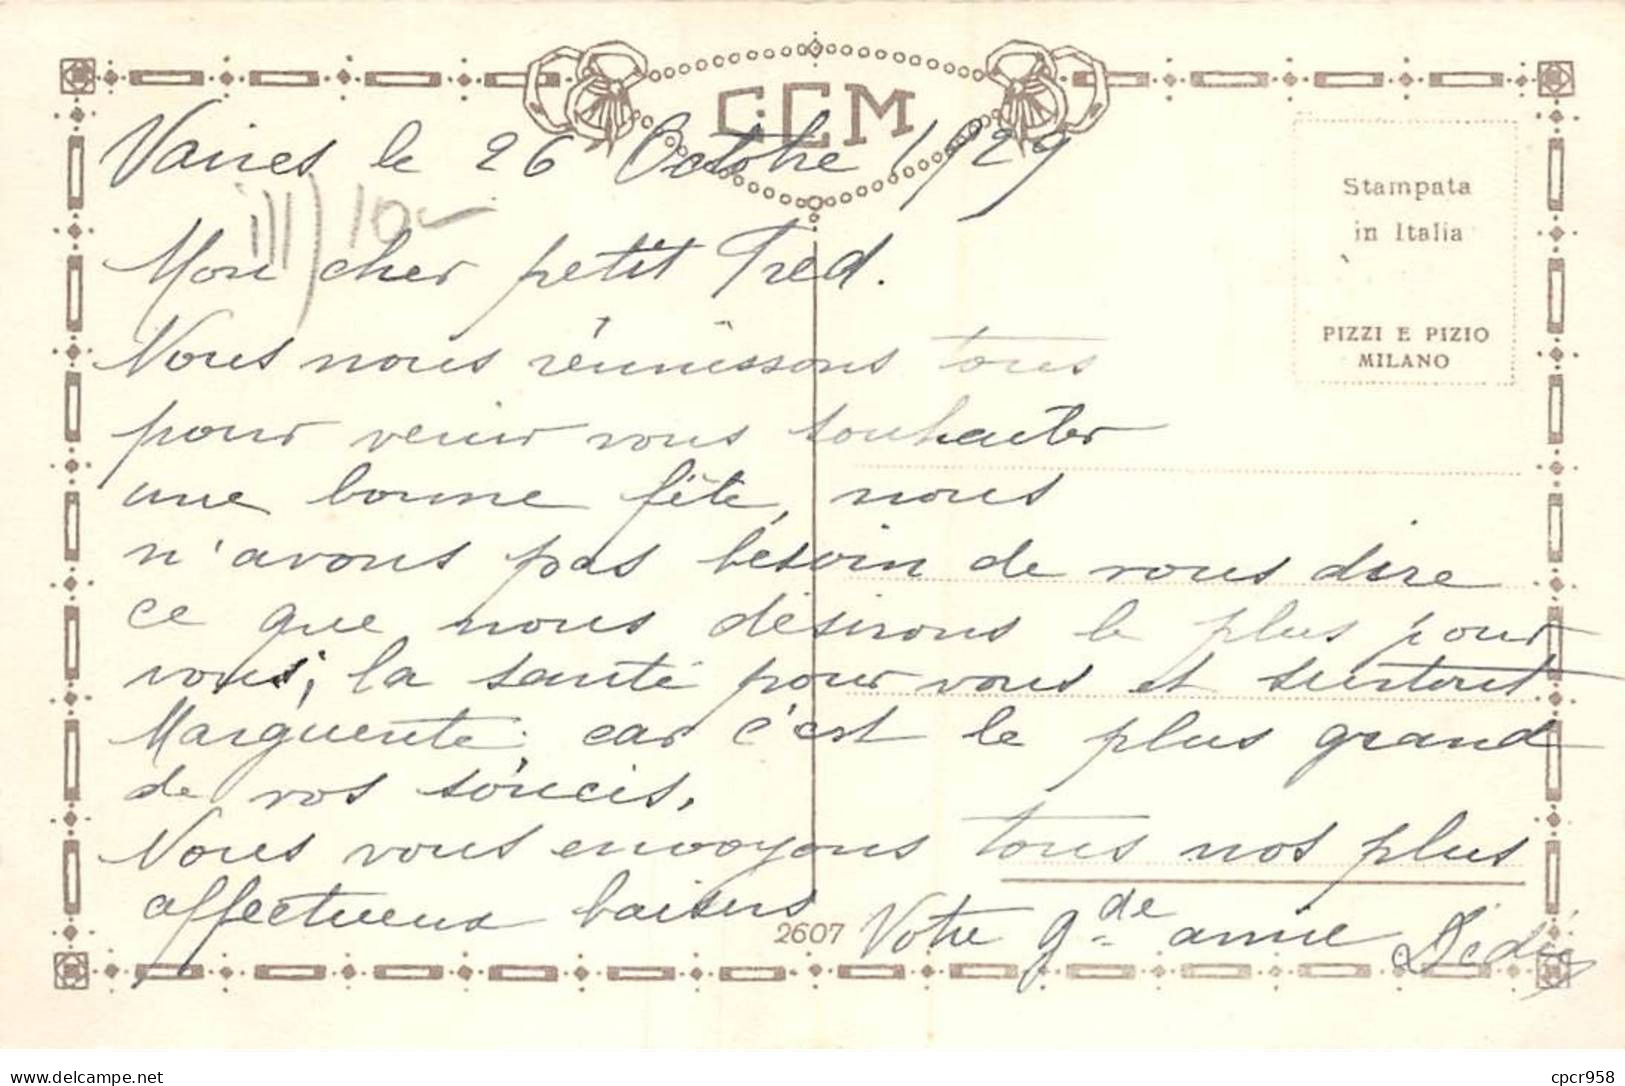 CCM
Vaires le 26 Octobre 1929
10
Mon cher petit Fred.
Nous nous réunissons tous
pour venir vous souhaiter
une bonne fête, nous
n'avons pas besoin de vous dire
ce que nous désirons le plus pour
vous; la santé pour vous et surtout
Marguerite car c'est le plus grand
de vos soucis.
Nous vous envoyons tous nos plus
affectueux baisers
Votre gde amie Dédée
Stampata
in Italia
PIZZI E PIZIO
MILANO
2607
delcampe.net
cpcr958